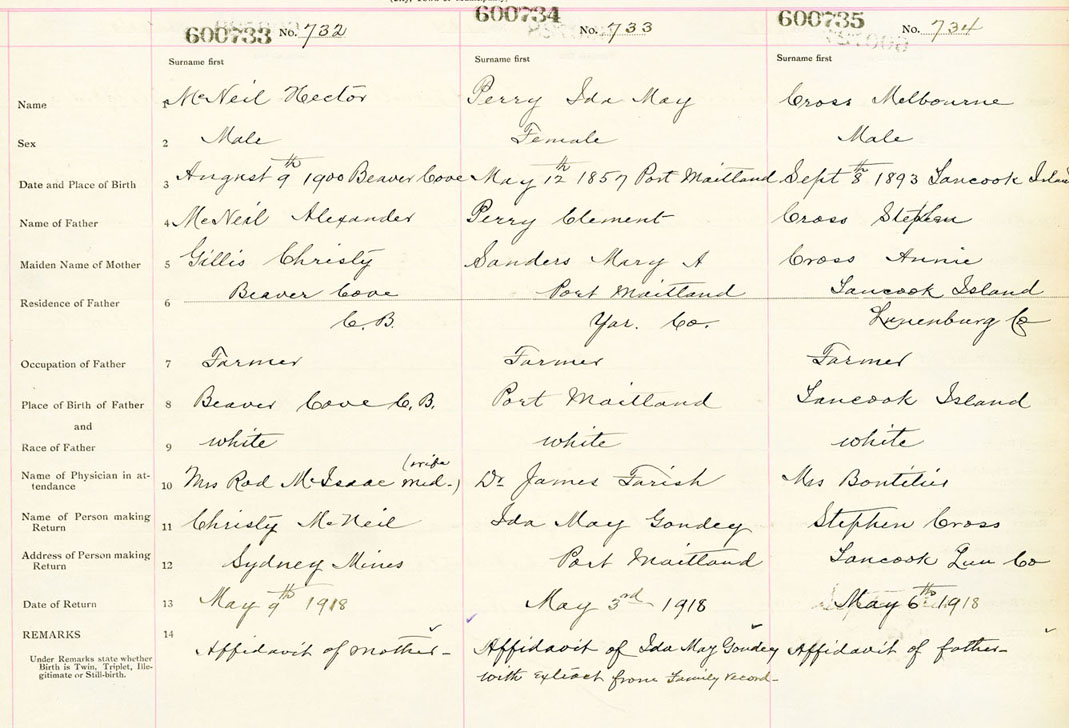 600733 No. 732 600734 No. 733 600735 No. 734
Surname first Surname first Surname first
Name 1 McNeil Hector Perry Ida May Cross Melbourne
Sex 2 Male Female Male
Date and Place of Birth 3 August 9th 1900 Beaver Cove May 12th 1857 Port Maitland Sept 8th 1893 Tancook Island
Name of Father 4 McNeil Alexander Perry Clement Cross Stephen
Maiden Name of Mother 5 Gillis Christy Sanders Mary A Cross Annie
Residence of Father 6 Beaver Cove Port Maitland Tancook Island
C.B. Yar. Co. Lunenburg Co
Occupation of Father 7 Farmer Farmer Farmer
Place of Birth of Father 8 Beaver Cove C.B. Port Maitland Tancook Island
and
Race of Father 9 white white white
Name of Physician in at-
tendance 10 Mrs Rod McIsaac (mid-wife) Dr James Farish Mrs
Name of Person making
Return 11 Christy McNeil Ida May Goudey Stephen Cross
Address of Person making
Return 12 Sydney Mines Port Maitland Tancook Lun Co
Date of Return 13 May 9th 1918 May 3rd 1918 May 6th 1918
REMARKS 14
Under Remarks state whether
Birth is Twin, Triplet, Ille-
gitimate or Still-birth.
Affidavit of mother- Affidavit of Ida May Goudey Affidavit of father-
with extract from Family record-